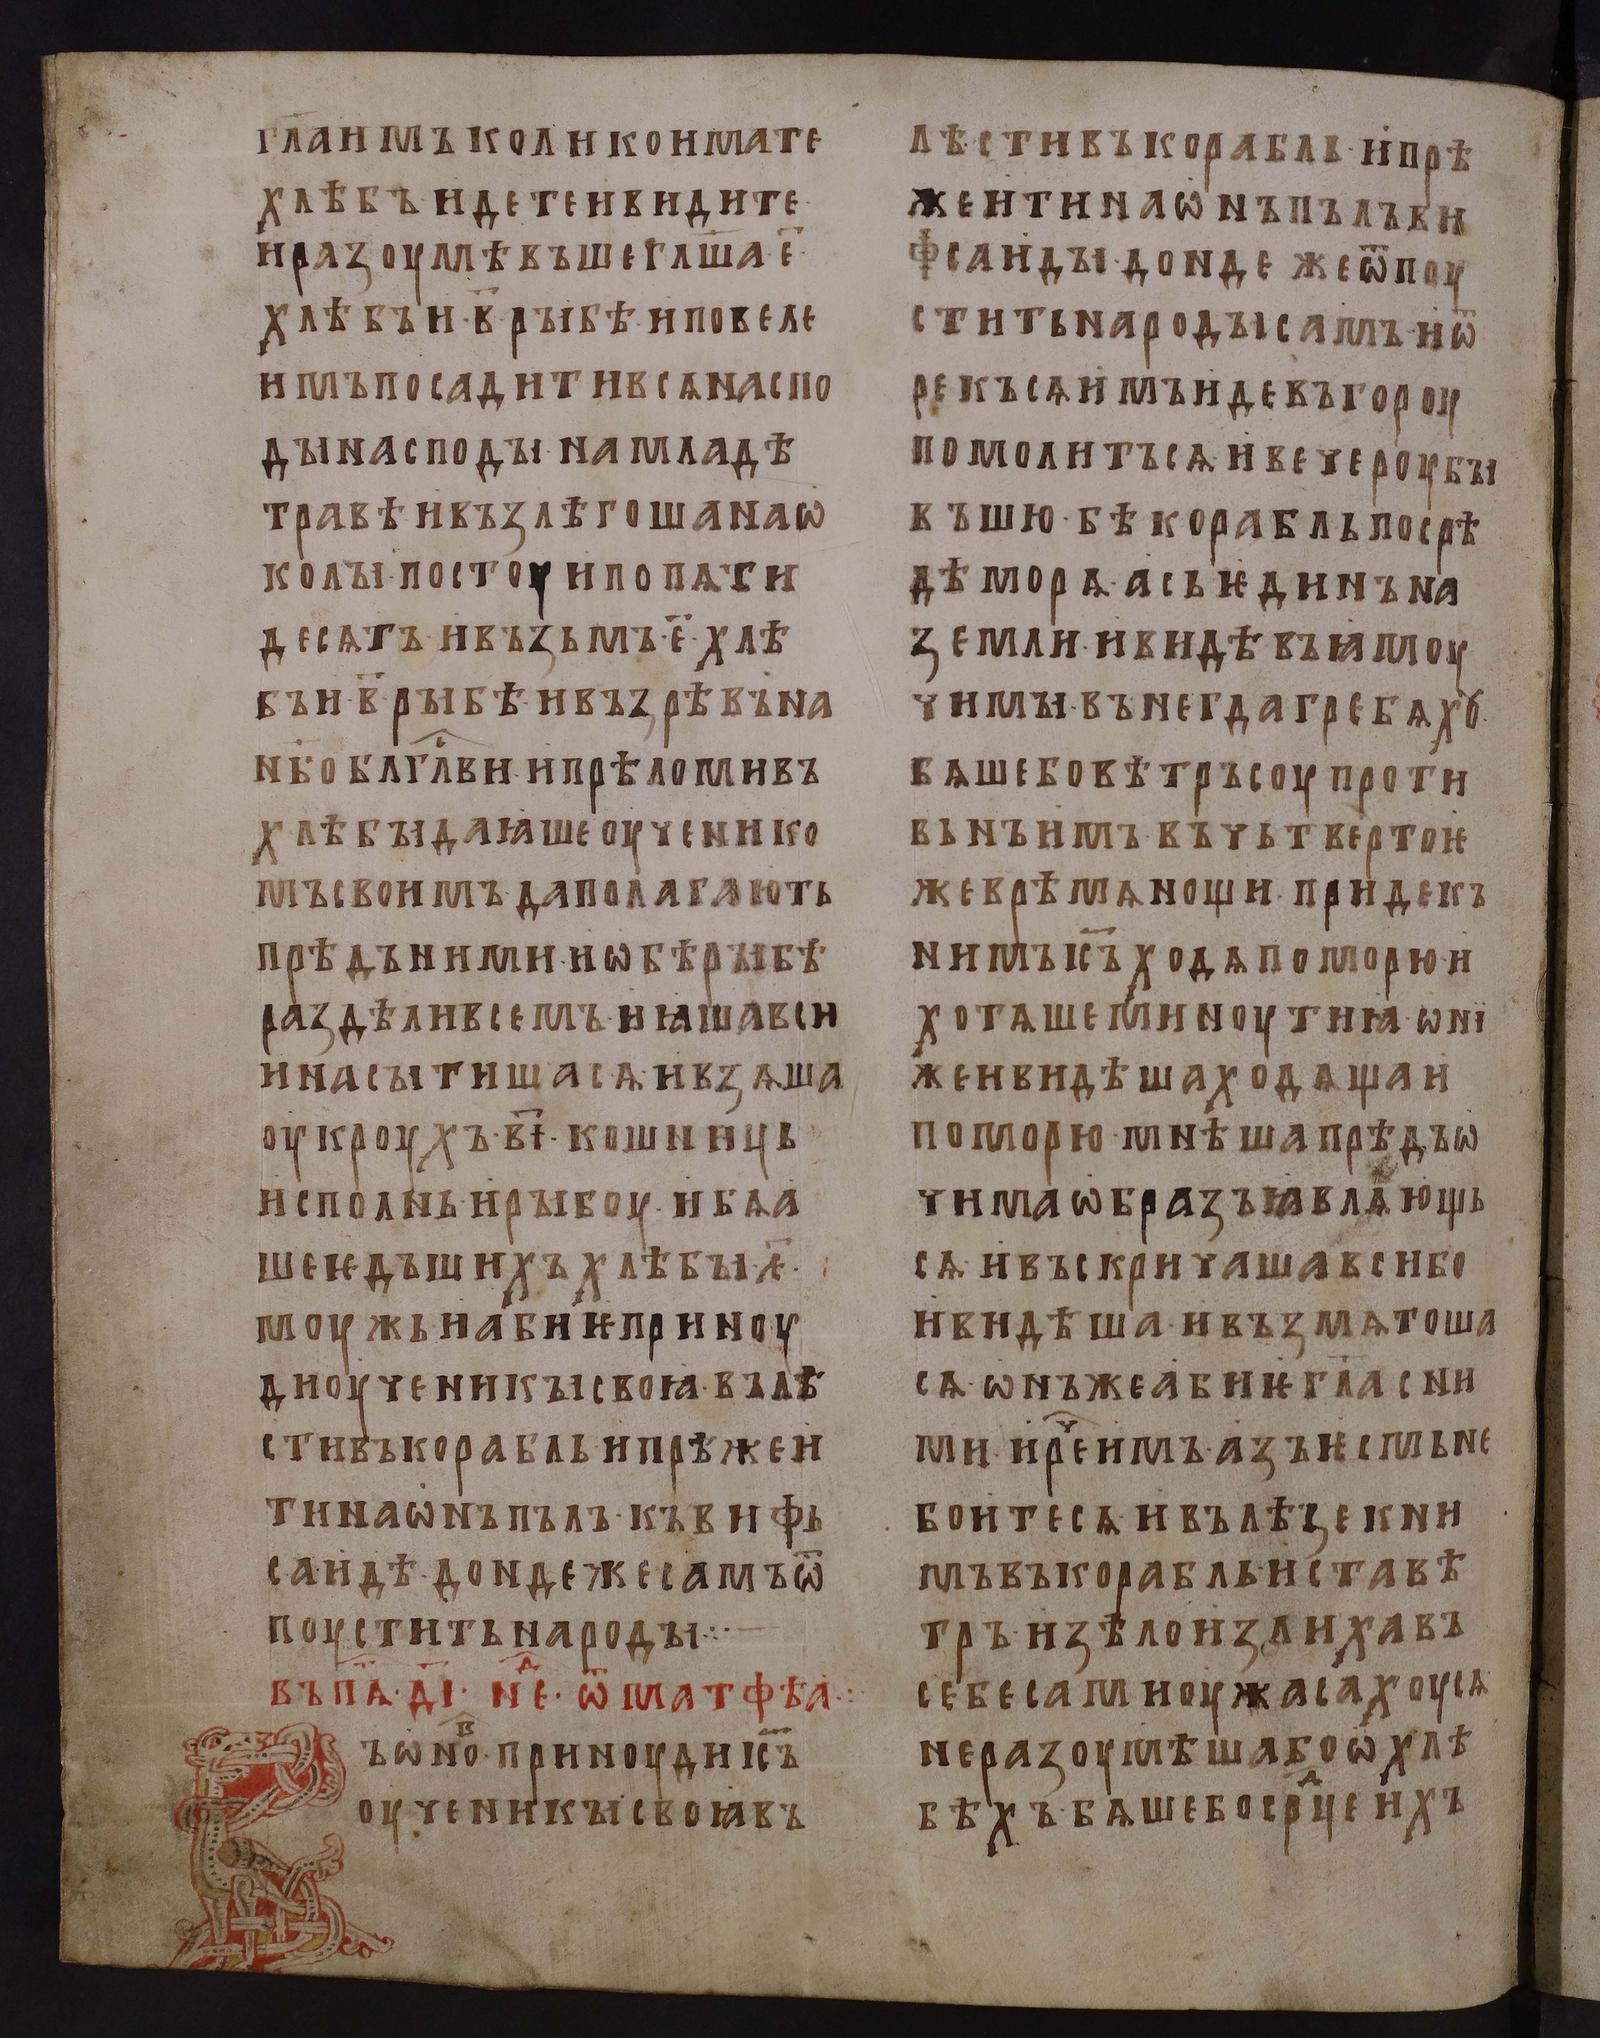 гл҃аимъколикоимате
хлѣбъидетеивидите·
иразоумѣвъшегл҃ша·е҃·
хлѣбъи·в҃·рыбѣ·иповеле
имъпосадитивсѧнаспо
дынасподы·намладѣ
травѣивъзлѣгошанаѡ
колы·постоуипопѧти
десѧтъ·ивъзьмъ·е҃·хлѣ
бъи·в҃·рыбѣ·ивъзрѣвъна
нб҃облгⷭ҇лви·ипрѣломивъ
хлѣбыдаꙗшеоученико
мъсвоимъ·даполагають
прѣдъними·иѡбѣрыбѣ
раздѣливсемъ·иꙗшавси
инасытишасѧ·ивзѧша
оукроухъ·в҃і·кошницъ
исполнь·ирыбоу·ибѧа
шеѥдъшихъхлѣбы·҂е҃·
моужь·иабиѥприноу
диоученикысвоꙗ·вълѣ
стивъкорабль·ипрѣжеи
тинаѡнъпълъ·къвифь
саидѣ·дондежесамъѿ
поуститьнароды·:·
въпѧ҃·д҃і·нⷣе·ѿматфѣа·:·
ъѡнⷡо·приноудиі҃съ
оученикысвоꙗвъ
лѣстивъкорабль·ипрѣ
жеитинаѡнъпълъви
фсаиды·дондежеѿпоу
ститьнародысамъ·иѿ
рекъсѧимъидевъгороу
помолитъсѧ·ивечероубы
въшю·бѣкорабльпосрѣ
дѣморѧ·асьѥдинъна
земли·ивидѣвъꙗмоу
чимы·въnегдагребѧхꙋ·
бѧшебовѣтръсоупроти
вьнъимъ·въчьтвертоѥ
жеврѣмѧнощи·придекъ
нимъі҃съходѧпоморюи
хотѧшеминоутиꙗ·ѡні
жеивидѣшаходѧщаи
поморю·мнѣшапрѣдъѡ
чимаѡбразъꙗвлѧющь
сѧ·ивъскричашавсибо
ивидѣша·ивъзмѧтоша
сѧ·ѡнъжеабиѥгл҃асни
ми·ирⷱ҇еимъ·азъѥсмьне
боитесѧ·ивълѣзекни
мъвъкорабль·иставѣ
тръ·изѣлоизлихавъ
себесамиоужасахоусѧ
неразоумѣшабоѡхлѣ
бѣхъ·бѧшебосрⷣцеихъ